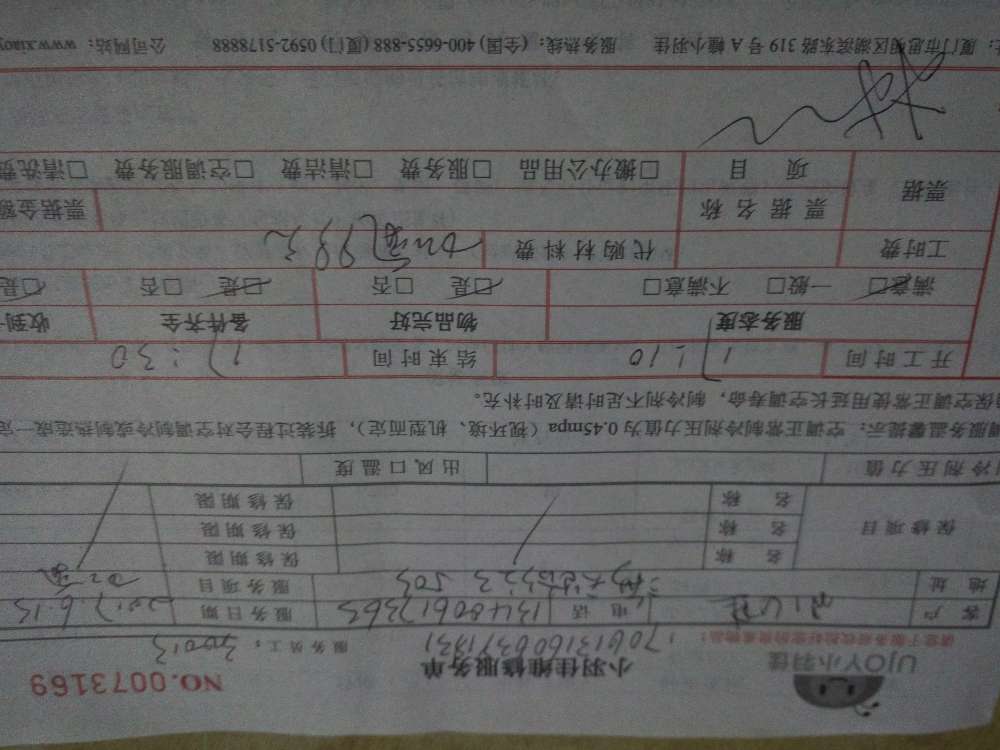 UJOY小羽佳
NO.0073169
小羽佳维修服务单
请您于服务前收好您的贵重物品!
服务员工:
客户 电话 13480617365 服务日期 2017.6.15
地址 503 服务项目
保修项目 名称 保修期限
名称 保修期限
名称 保修期限
冷剂压力值 出风口温度
调服务温馨提示:空调正常制冷剂压力值为0.45mpa(视环境、机型而定),拆装过程会对空调制冷或制热造成一定
保空调正常使用延长空调寿命,制冷剂不足时请及时补充。
开工时间 17:10 结束时间 17:30
服务态度 物品完好 备件齐全 收到
满意□ 一般□ 不满意□ □是 □否 □是 □否 □是
工时费 代购材料费 98元
票据 票据名称 票据金额
项目 □搬办公用品 □服务费 □清洁费 □空调服务费 □清洗费
:厦门市思明区湖滨东路319号A幢小羽佳 服务热线:(全国) 400-6655-888 (厦门) 0592-5178888 公司网站:www.xiaoy